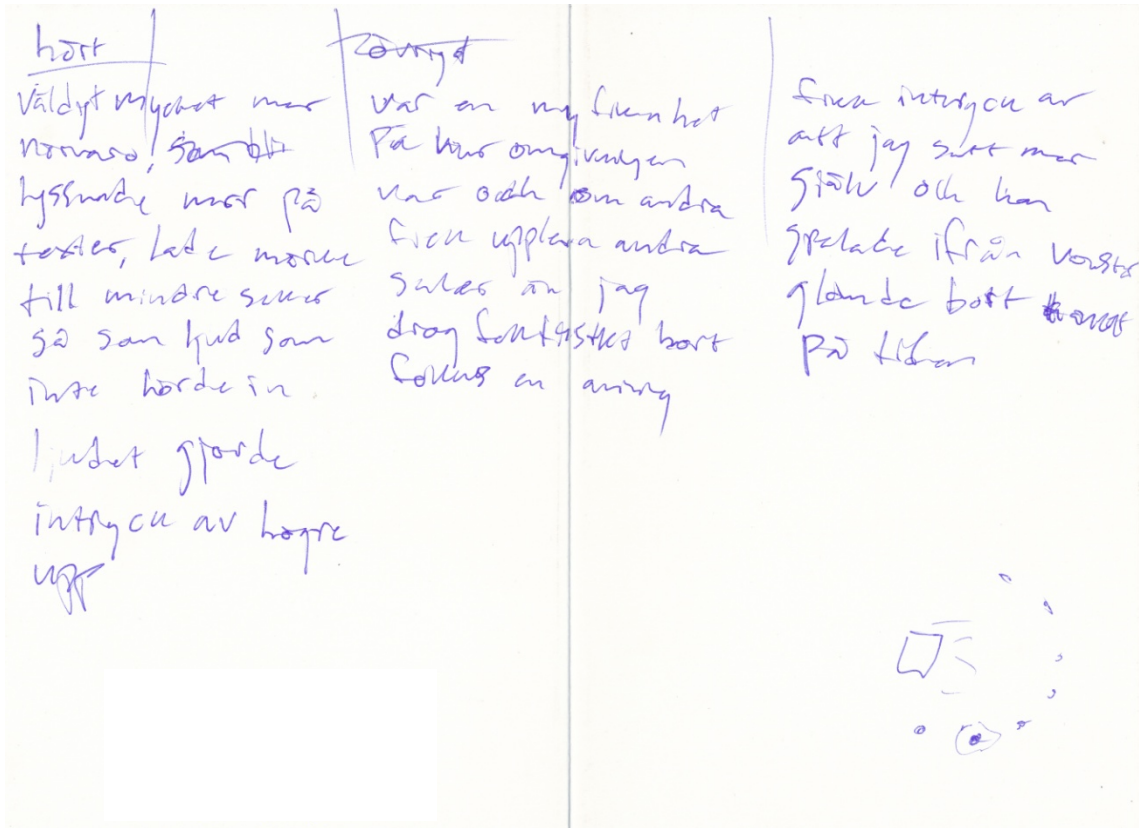 hört
väldigt mycket mer
närvaro, som blir
lyssnade mer på
texter, lade märke
till mindre saker
så som ljud som
inte hörde in
ljudet gjorde
intryck av högre
upp
övrigt
var en nyfikenhet
På hur omgivningen
var och om andra
fick uppleva andra
saker än jag
drog faktiskt bort
fokus en aning
fick intryck av
att jag satt mer
själv och han
spelade ifrån vänster
glömde bort
på tiden